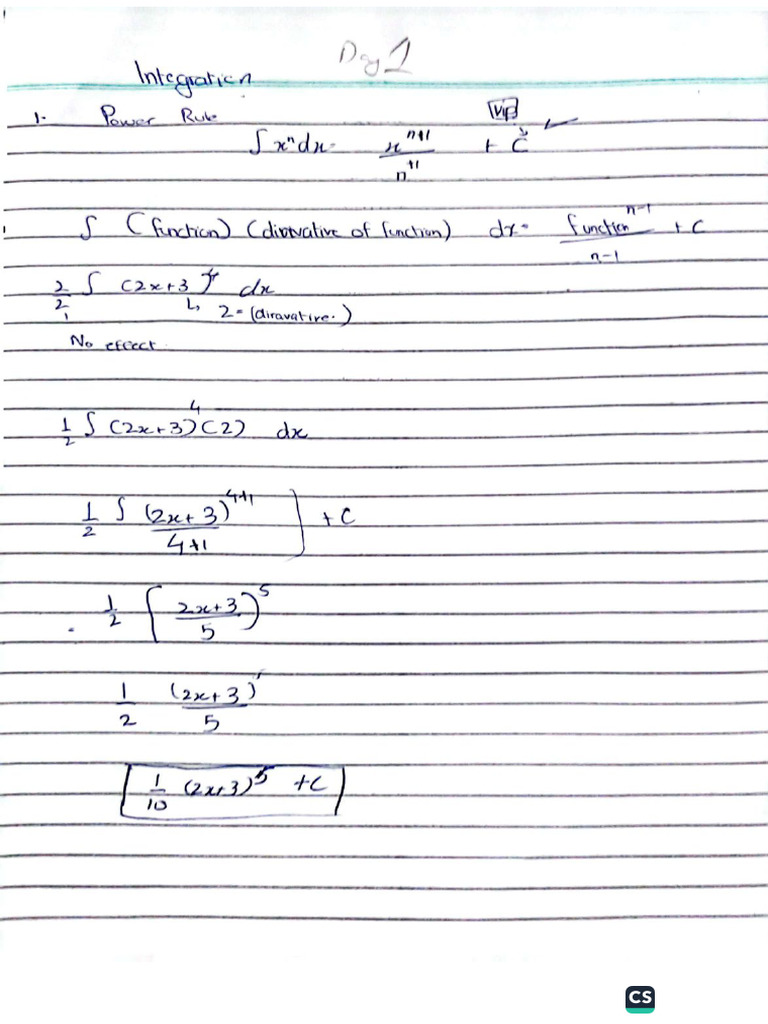 Day 1
Integration
1. Power Rule VIP
∫ xⁿ dx = xⁿ⁺¹/n+1 + C
∫ (function) (dirivative of function) dx = functionⁿ⁻¹/n-1 + C
2/2 ∫ (2x+3)⁴ dx
↳ 2 = (diravative.)
No effect.
1/2 ∫ (2x+3)⁴ (2) dx
1/2 ∫ (2x+3)⁴⁺¹/4+1 ] + C
1/2 [ 2x+3/5 )⁵
1/2 (2x+3)/5
1/10 (2x+3)⁵ + C
CS